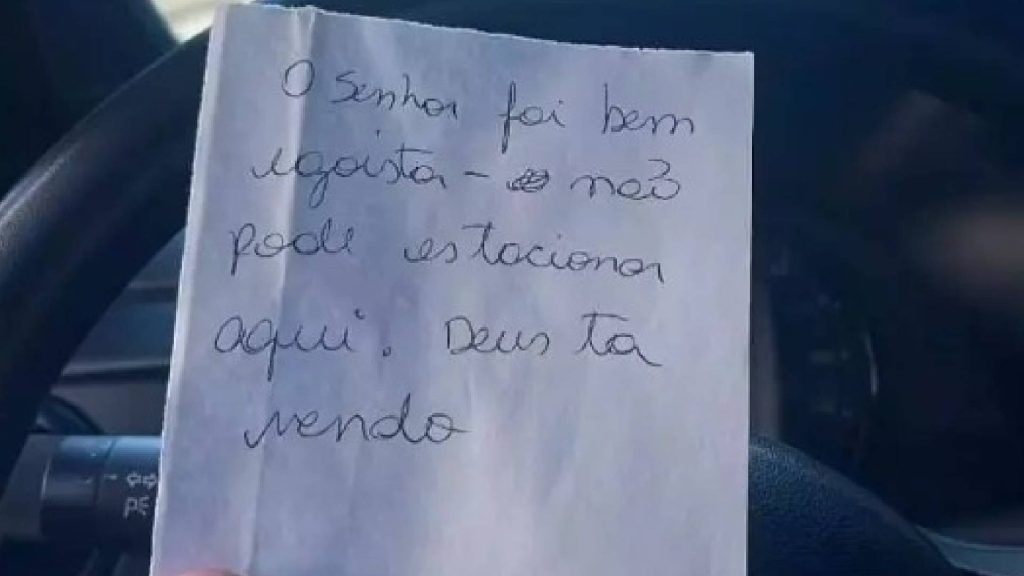 O Senhor foi bem
egoista - não
pode estacionar
aqui. Deus ta
vendo